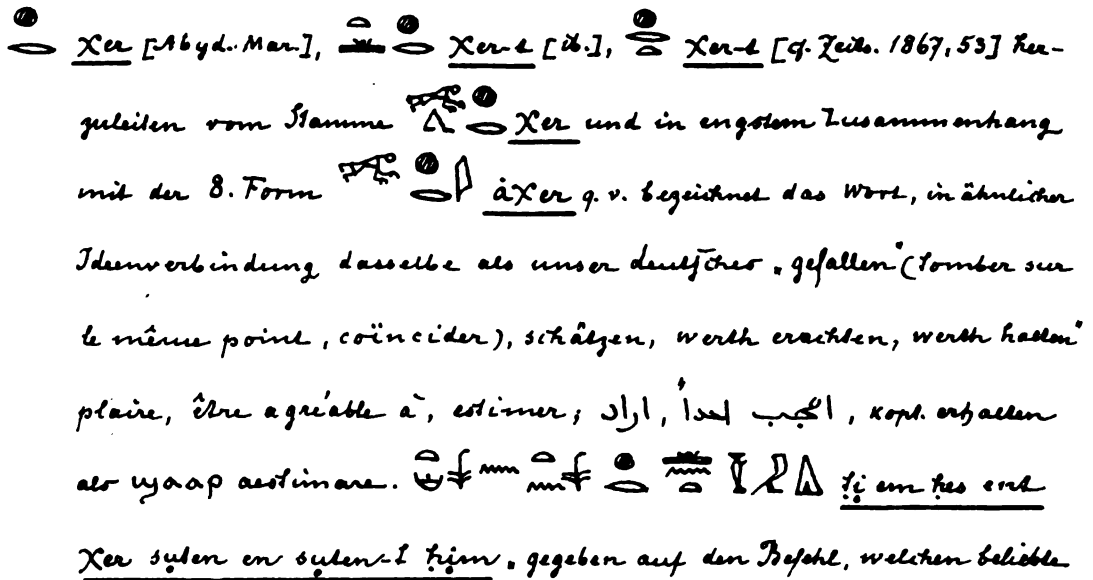 χer [Abyd. Mar.], χer-t [ib.], χer-t [cf. Zeits. 1867, 53] her-
zuleiten vom Stamme χer und in engstem Zusammenhang
mit der 8. Form áχer q. v. bezeichnet das Wort, in ähnlicher
Ideenverbindung dasselbe als unser deutsches „gefallen" (tomber sur
le même point, coïncider), schätzen, werth erachten, werth halten"
plaire, être agréable à, estimer; اراد, اعجب احداً, kopt. erhalten
als ϣⲁⲁⲣ aestimare. ṭi em ḥes ent
χer suten en suten-t ḥim „gegeben auf den Befehl, welchen beliebte